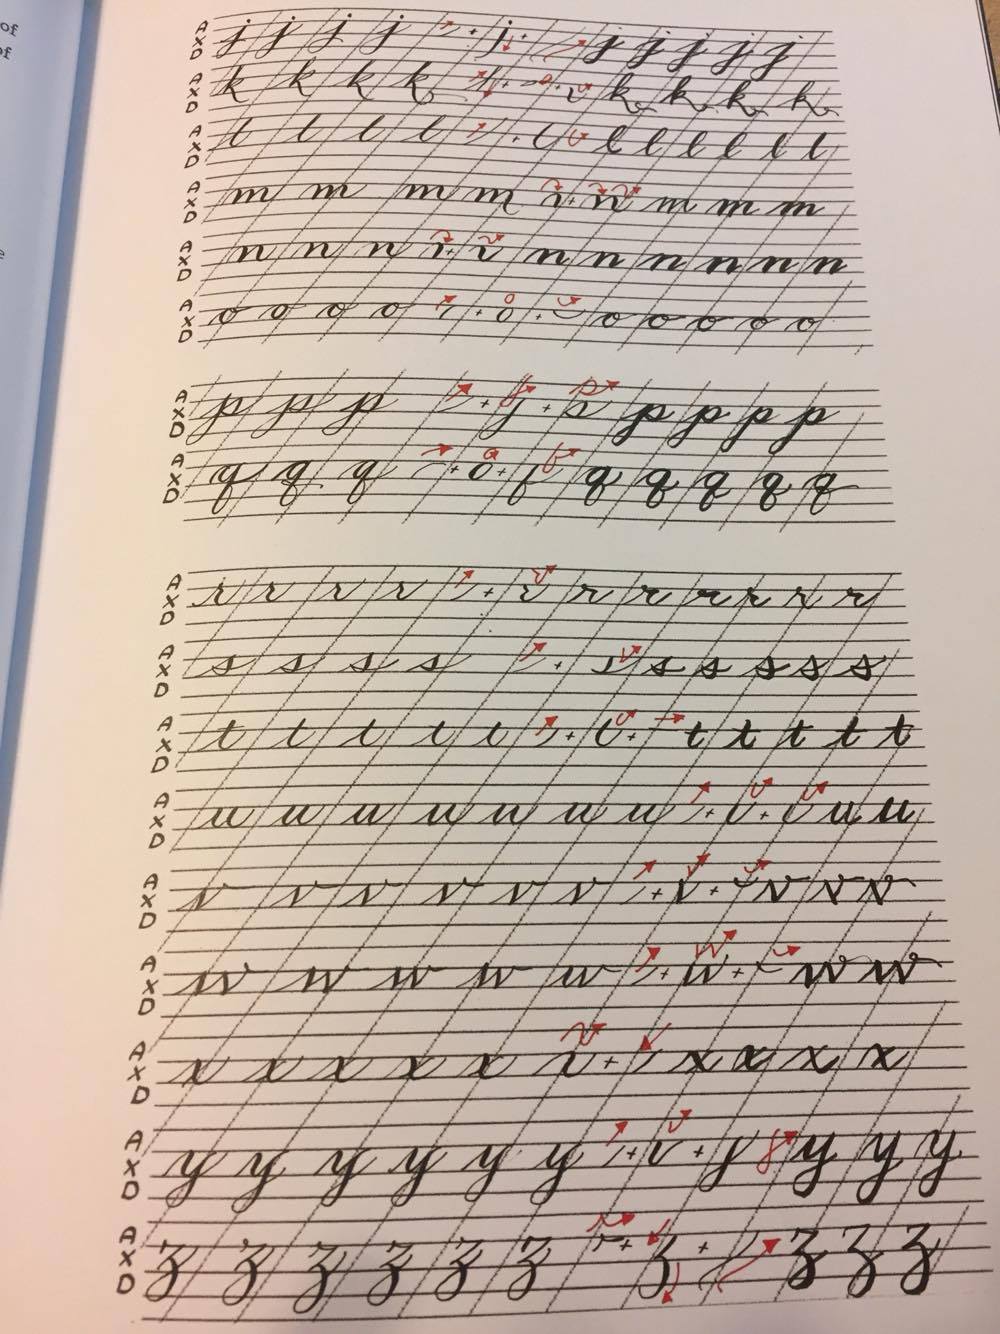 of
of
e
A
X j j j j + j + j j j j j
D
A
X k k k k + + k k k k
D
A
X l l l l + l l l l l l l
D
A
X m m m m + m m m
D
A
X n n n + n n n n n n
D
A
X o o o o + o + o o o o o
D
A
X p p p + + p p p p
D
A
X q q q + o + q q q q q
D
A
X r r r r + r r r r r r
D
A
X s s s s + s s s s s
D
A
X t t t t t + + t t t t t
D
A
X u u u u u u u + + u u
D
A
X v v v v v v + v + v v v
D
A
X w w w w w + w + w w
D
A
X x x x x x + x x x x
D
A
X y y y y y y + + y y y
D
A
X z z z z z z + + z z z
D